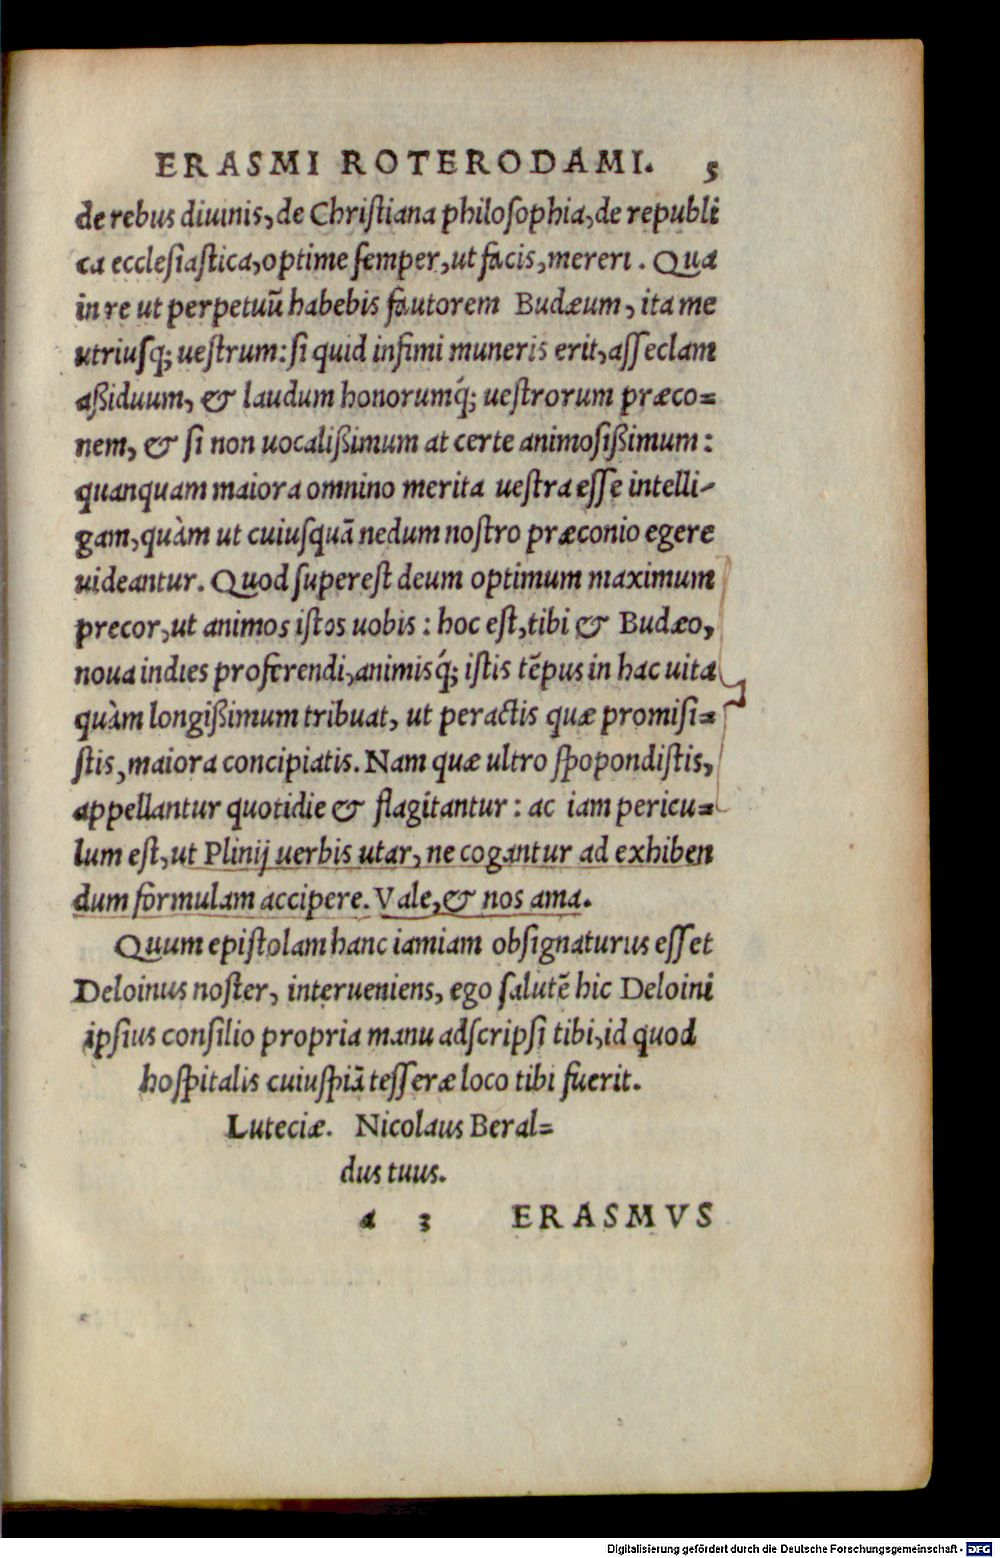 ERASMI ROTERODAMI. 5
de rebus diuinis, de Christiana philosophia, de republi
ca ecclesiastica, optime semper, ut facis, mereri. Qua
in re ut perpetuũ habebis fautorem Budæum, ita me
utriusq; uestrum: si quid infimi muneris erit, asseclam
aßiduum, & laudum honorumq́; uestrorum præco=
nem, & si non uocalißimum at certe animosißimum:
quanquam maiora omnino merita uestra esse intelli-
gam, quàm ut cuiusquã nedum nostro præconio egere
uideantur. Quod superest deum optimum maximum
precor, ut animos istos uobis: hoc est, tibi & Budæo,
noua indies proferendi, animisq́; istis tẽpus in hac uita
quàm longißimum tribuat, ut peractis quæ promisi=
stis, maiora concipiatis. Nam quæ ultro spopondistis,
appellantur quotidie & flagitantur: ac iam pericu=
lum est, ut Plinij uerbis utar, ne cogantur ad exhiben
dum formulam accipere. Vale, & nos ama.
Quum epistolam hanc iamiam obsignaturus esset
Deloinus noster, interueniens, ego salutẽ hic Deloini
ipsius consilio propria manu adscripsi tibi, id quod
hospitalis cuiuspiã tesseræ loco tibi fuerit.
Luteciæ. Nicolaus Beral=
dus tuus.
a 3 ERASMVS
Digitalisierung gefördert durch die Deutsche Forschungsgemeinschaft - DFG